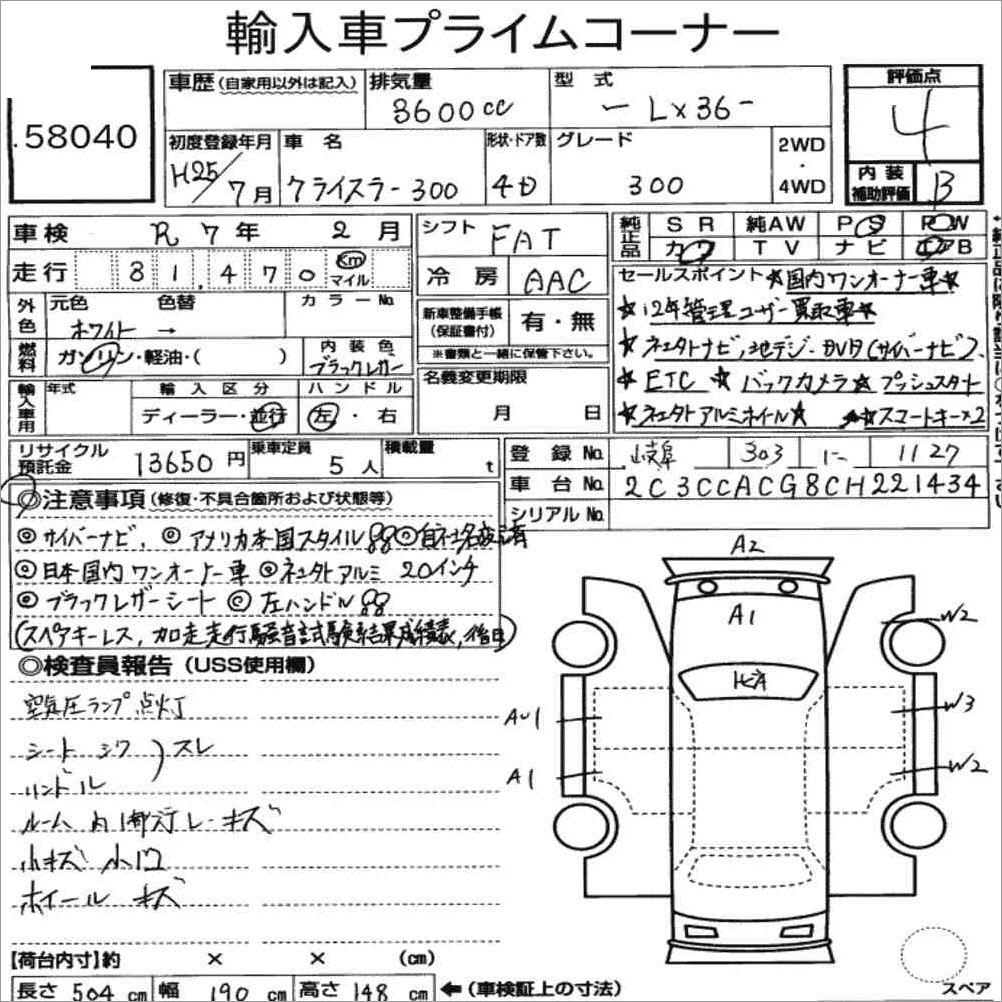 輸入車プライムコーナー
58040
車歴 (自家用以外は記入)
排気量
3600cc
型式
ー Lx36 -
評価点
4
初度登録年月
H25/7月
車名
クライスラー300
形状・ドア数
4D
グレード
300
2WD
・
4WD
内装
補助評価
B
車検 R 7年 2月
走行 81,470 Km マイル
シフト FAT
冷房 AAC
純正品
SR 純AW PS PW
カワ TV ナビ エアB
外色 元色 色替 カラーNo.
ホワイト →
燃料 ガソリン・軽油・( )
内装色
ブラックレザー
新車整備手帳
(保証書付)
有・無
※書類と一緒に保管下さい。
名義変更期限
月 日
輸入車用 年式 輸入区分 ハンドル
ディーラー・並行 左・右
セールスポイント ★国内ワンオーナー車★
★12年管理ユーザー買取車★
★社外ナビ,地デジ・DVD(サイバーナビ)、
★ETC ★バックカメラ★プッシュスタート
★社外アルミホイール★ ★スマートキー×2
リサイクル
預託金
13650円
乗車定員
5人
積載量
t
登録No. 岐阜 303 1127
車台No. 2C3CCACG8CH221434
シリアルNo.
◎注意事項 (修復・不具合箇所および状態等)
◎サイバーナビ、◎アメリカ本国スタイル
◎日本国内ワンオーナー車 ◎社外アルミ 20インチ
◎ブラックレザーシート ◎左ハンドル
(スペアキーレス、加速走行騒音試験結果成績表、後日)
◎検査員報告 (USS使用欄)
空気圧ランプ点灯
シート シワ)スレ
ハンドル
ルーム内 キズ
小キズ 小凹
ホイール キズ
A2
A1
W2
W3
W2
AU1
A1
【荷台内寸】約 × × (cm)
長さ 504 cm 幅 190 cm 高さ 148 cm ←(車検証上の寸法)
スペア